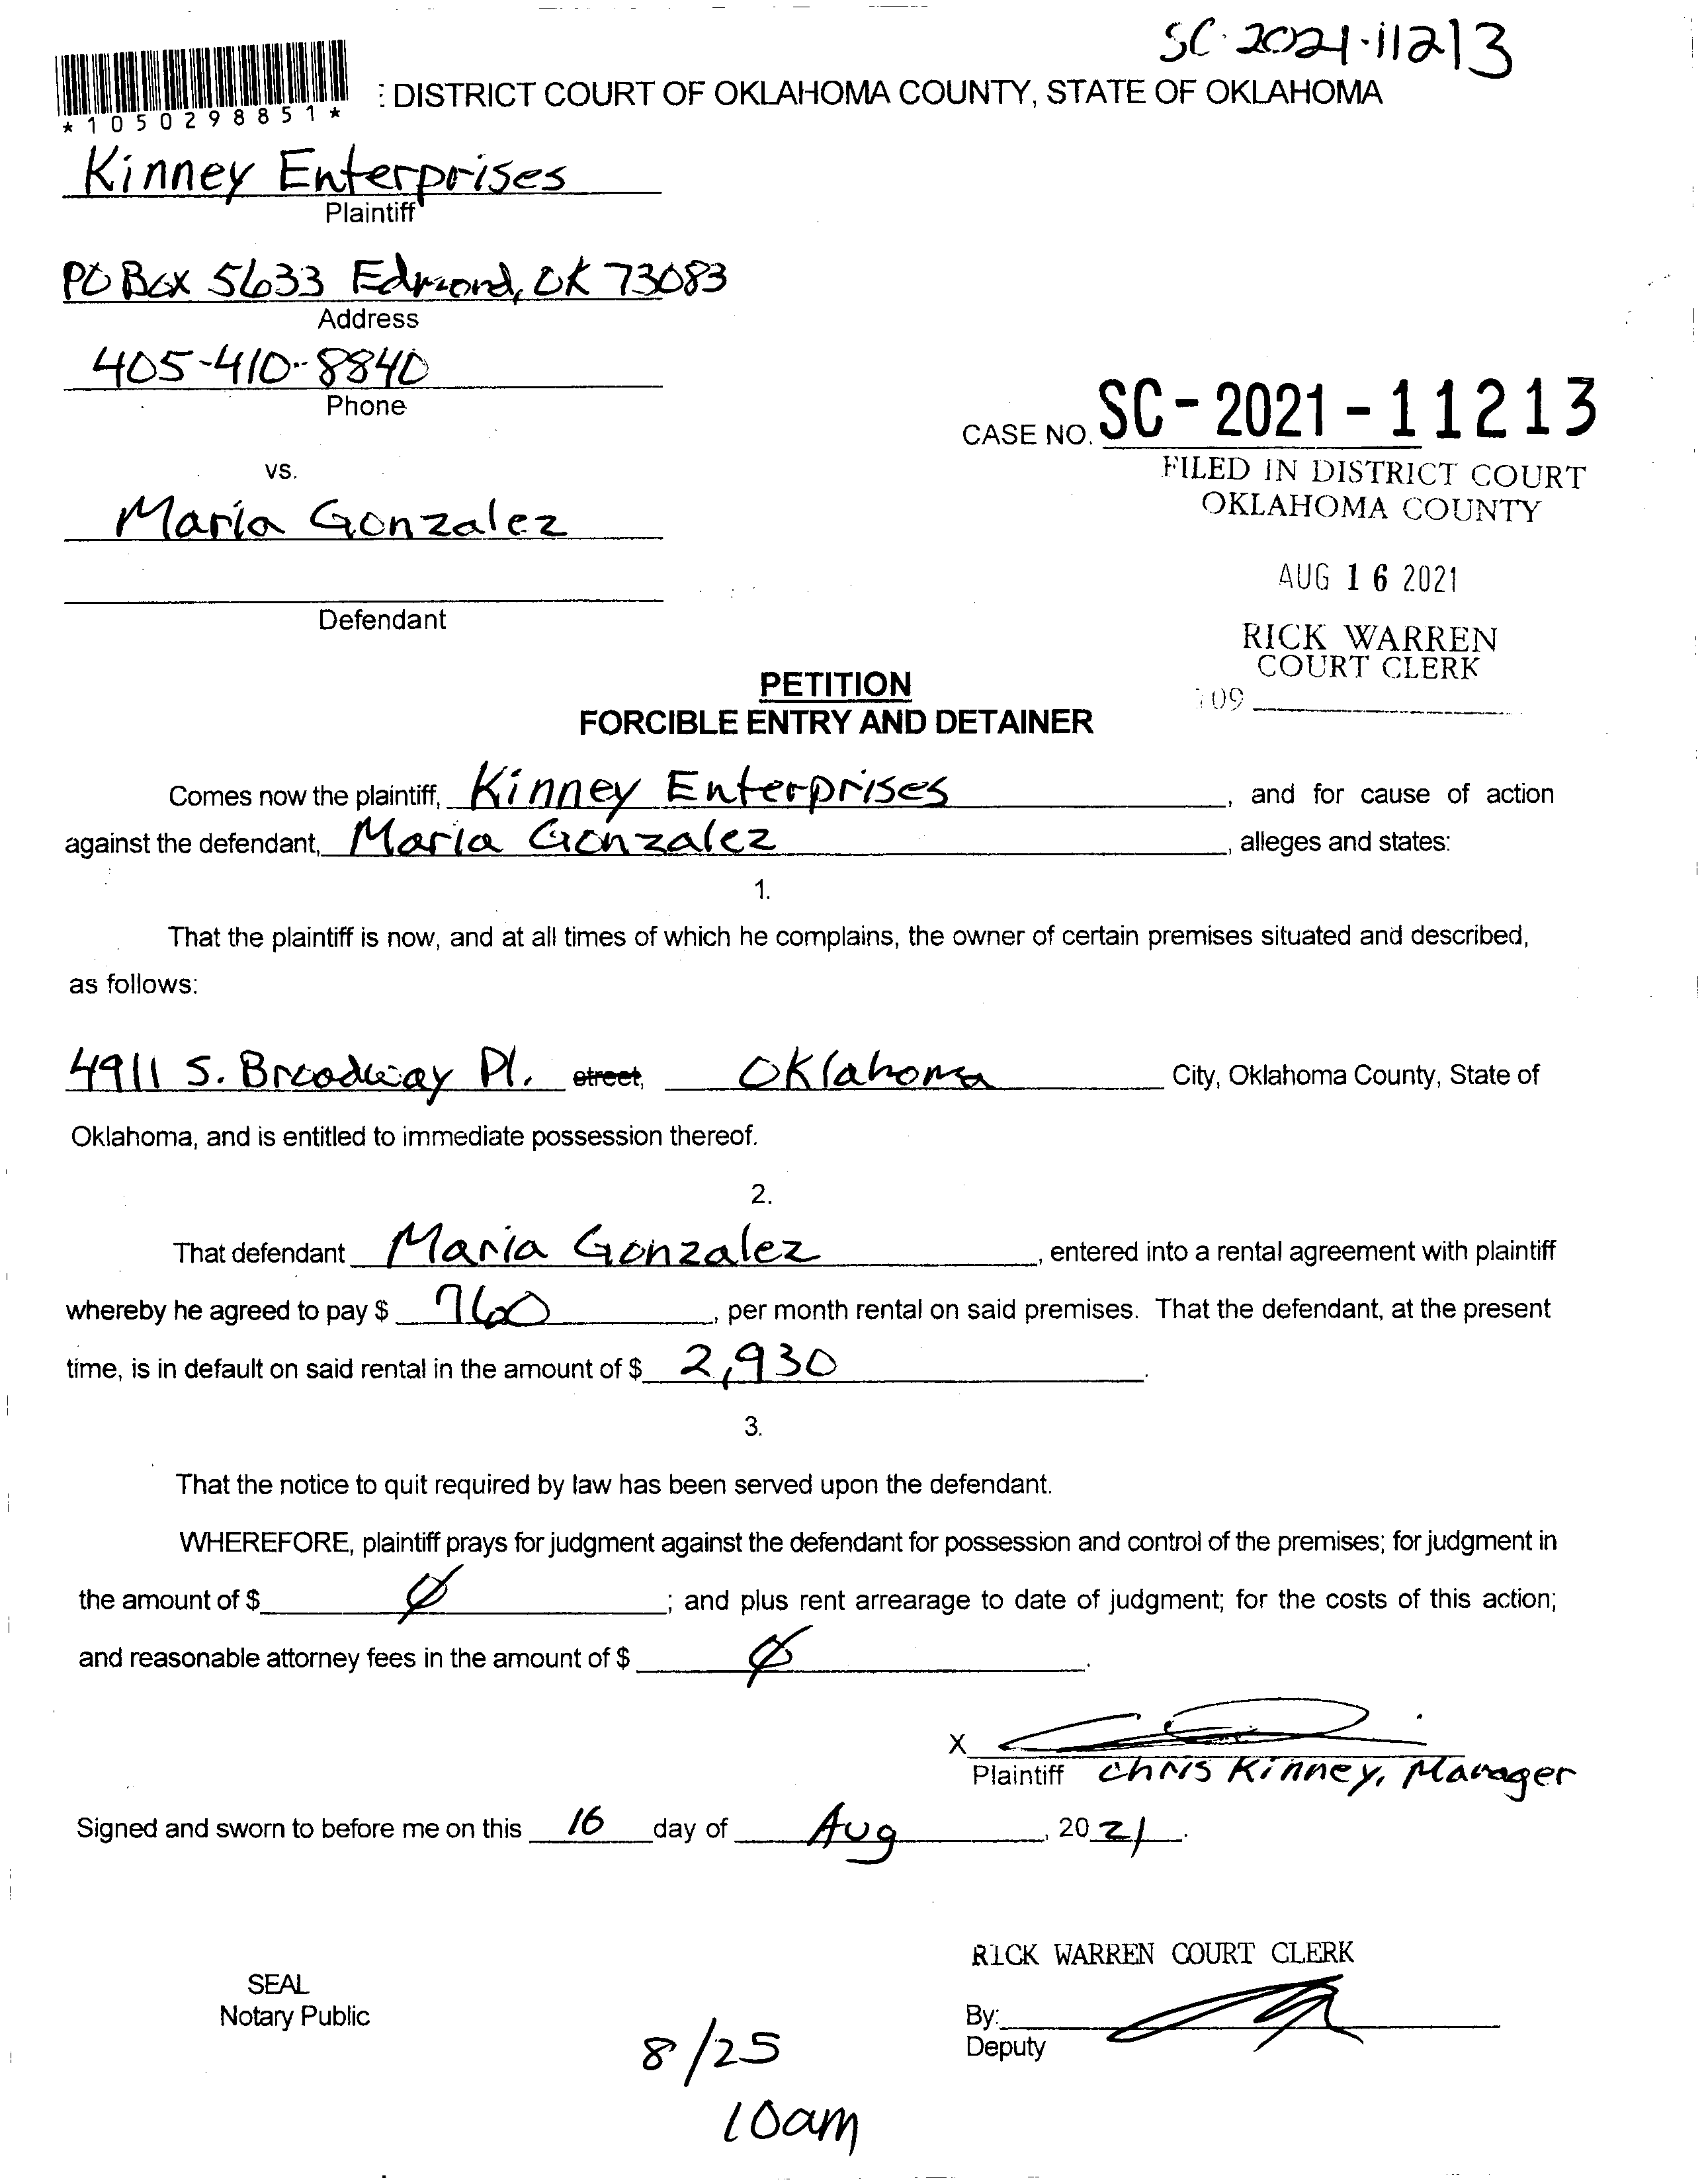 SC-2021-11213
: DISTRICT COURT OF OKLAHOMA COUNTY, STATE OF OKLAHOMA
*1050298851*
Kinney Enterprises
Plaintiff
PO Box 5633 Edmond, OK 73083
Address
405-410-8840
Phone
CASE NO. SC-2021-11213
FILED IN DISTRICT COURT
OKLAHOMA COUNTY
vs.
Maria Gonzalez
AUG 16 2021
Defendant
RICK WARREN
COURT CLERK
109
PETITION
FORCIBLE ENTRY AND DETAINER
Comes now the plaintiff, Kinney Enterprises, and for cause of action
against the defendant, Maria Gonzalez, alleges and states:
1.
That the plaintiff is now, and at all times of which he complains, the owner of certain premises situated and described,
as follows:
4911 S. Broadway Pl. street, Oklahoma City, Oklahoma County, State of
Oklahoma, and is entitled to immediate possession thereof.
2.
That defendant Maria Gonzalez, entered into a rental agreement with plaintiff
whereby he agreed to pay $ 760, per month rental on said premises. That the defendant, at the present
time, is in default on said rental in the amount of $ 2,930.
3.
That the notice to quit required by law has been served upon the defendant.
WHEREFORE, plaintiff prays for judgment against the defendant for possession and control of the premises; for judgment in
the amount of $ Ø; and plus rent arrearage to date of judgment; for the costs of this action;
and reasonable attorney fees in the amount of $ Ø.
X
Plaintiff Chris Kinney, Manager
Signed and sworn to before me on this 16 day of Aug, 2021.
RICK WARREN COURT CLERK
SEAL
Notary Public
By:
Deputy
8/25
10am